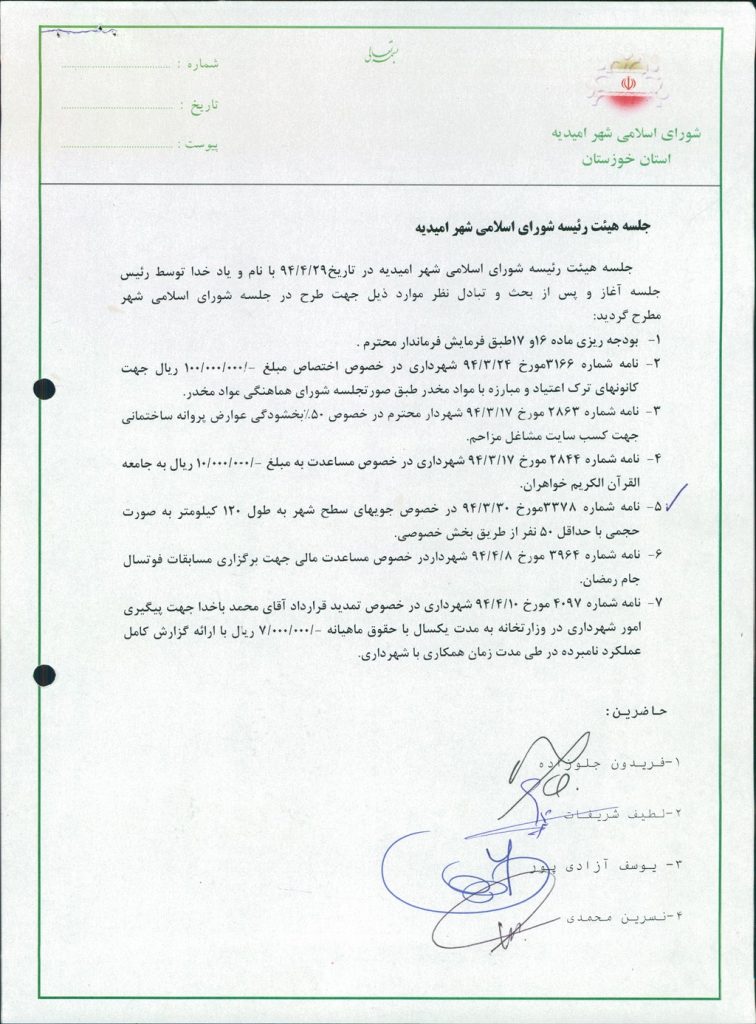 بسمه تعالی
شماره :
تاریخ :
پیوست :
شورای اسلامی شهر امیدیه
استان خوزستان
جلسه هیئت رئیسه شورای اسلامی شهر امیدیه
جلسه هیئت رئیسه شورای اسلامی شهر امیدیه در تاریخ۹۴/۴/۲۹ با نام و یاد خدا توسط رئیس
جلسه آغاز و پس از بحث و تبادل نظر موارد ذیل جهت طرح در جلسه شورای اسلامی شهر
مطرح گردید:
۱- بودجه ریزی ماده ۱۶و ۱۷طبق فرمایش فرماندار محترم .
۲- نامه شماره ۳۱۶۶مورخ ۹۴/۳/۲۴ شهرداری در خصوص اختصاص مبلغ -/۱۰۰/۰۰۰/۰۰۰ ریال جهت
کانونهای ترک اعتیاد و مبارزه با مواد مخدر طبق صورتجلسه شورای هماهنگی مواد مخدر.
۳- نامه شماره ۲۸۶۳ مورخ ۹۴/۳/۱۷ شهردار محترم در خصوص ۵۰٪بخشودگی عوارض پروانه ساختمانی
جهت کسب سایت مشاغل مزاحم.
۴- نامه شماره ۲۸۴۴ مورخ ۹۴/۳/۱۷ شهرداری در خصوص مساعدت به مبلغ -/۱۰/۰۰۰/۰۰۰ ریال به جامعه
القرآن الکریم خواهران.
۵- نامه شماره ۳۳۷۸مورخ ۹۴/۳/۳۰ در خصوص جویهای سطح شهر به طول ۱۲۰ کیلومتر به صورت
حجمی با حداقل ۵۰ نفر از طریق بخش خصوصی.
۶- نامه شماره ۳۹۶۴ مورخ ۹۴/۴/۸ شهرداردر خصوص مساعدت مالی جهت برگزاری مسابقات فوتسال
جام رمضان.
۷- نامه شماره ۴۰۹۷ مورخ ۹۴/۴/۱۰ شهرداری در خصوص تمدید قرارداد آقای محمد باخدا جهت پیگیری
امور شهرداری در وزارتخانه به مدت یکسال با حقوق ماهیانه -/۷/۰۰۰/۰۰۰ ریال با ارائه گزارش کامل
عملکرد نامبرده در طی مدت زمان همکاری با شهرداری.
حاضرین:
۱-فریدون جلوزاده
۲-لطیف شریفات
۳- یوسف آزادی پور
۴-نسرین محمدی